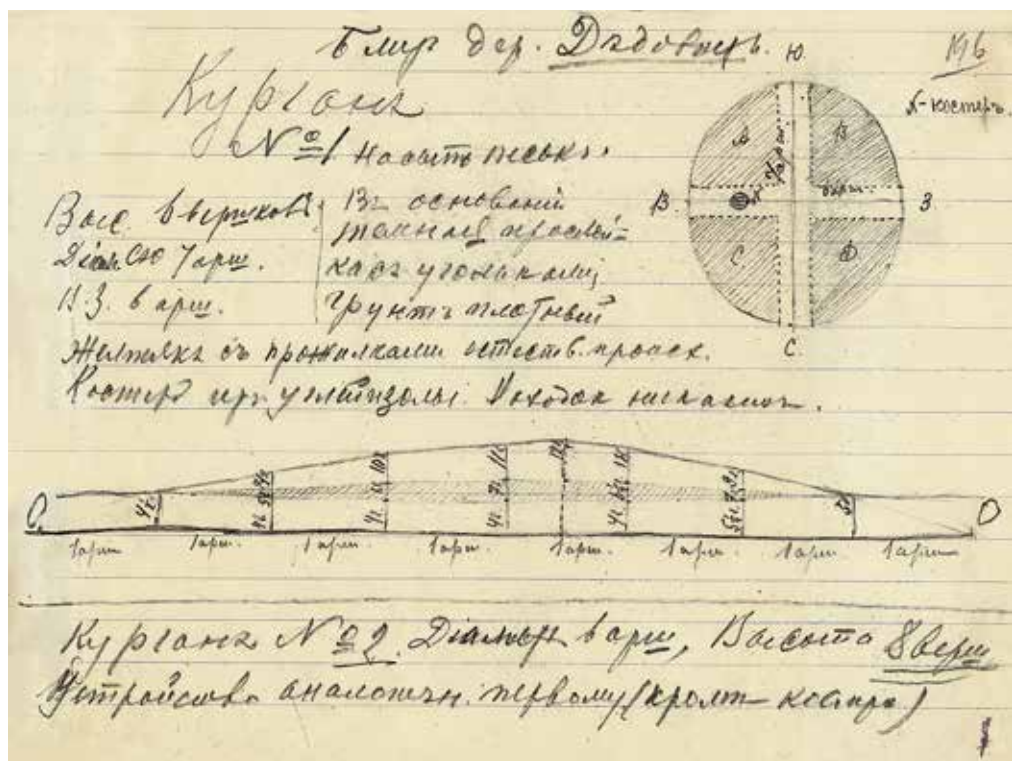 Близ дер. Дѣдовичъ.
196
Х-костеръ.
Курганъ
№1 насыпь песькъ.
Ю
А
В
В.
З
С
D
С.
Выс. 6 вершковъ
Діам СЮ 7 арш.
В.З. 6 арш.
Въ основаніи
темная прослой=
ка съ угольками,
Грунтъ плотный
Желтякъ съ прожилками естеств. происх.
Костеръ изъ угля и золы. Находок никакихъ.
О
О
1 арш
1 арш.
1 арш.
1 арш.
1 арш.
1 арш.
1 арш.
1 арш
Курганъ №2. Діаметръ 6 арш, Высота 8 верш
Устройство аналогичн. первому (кромѣ костра)